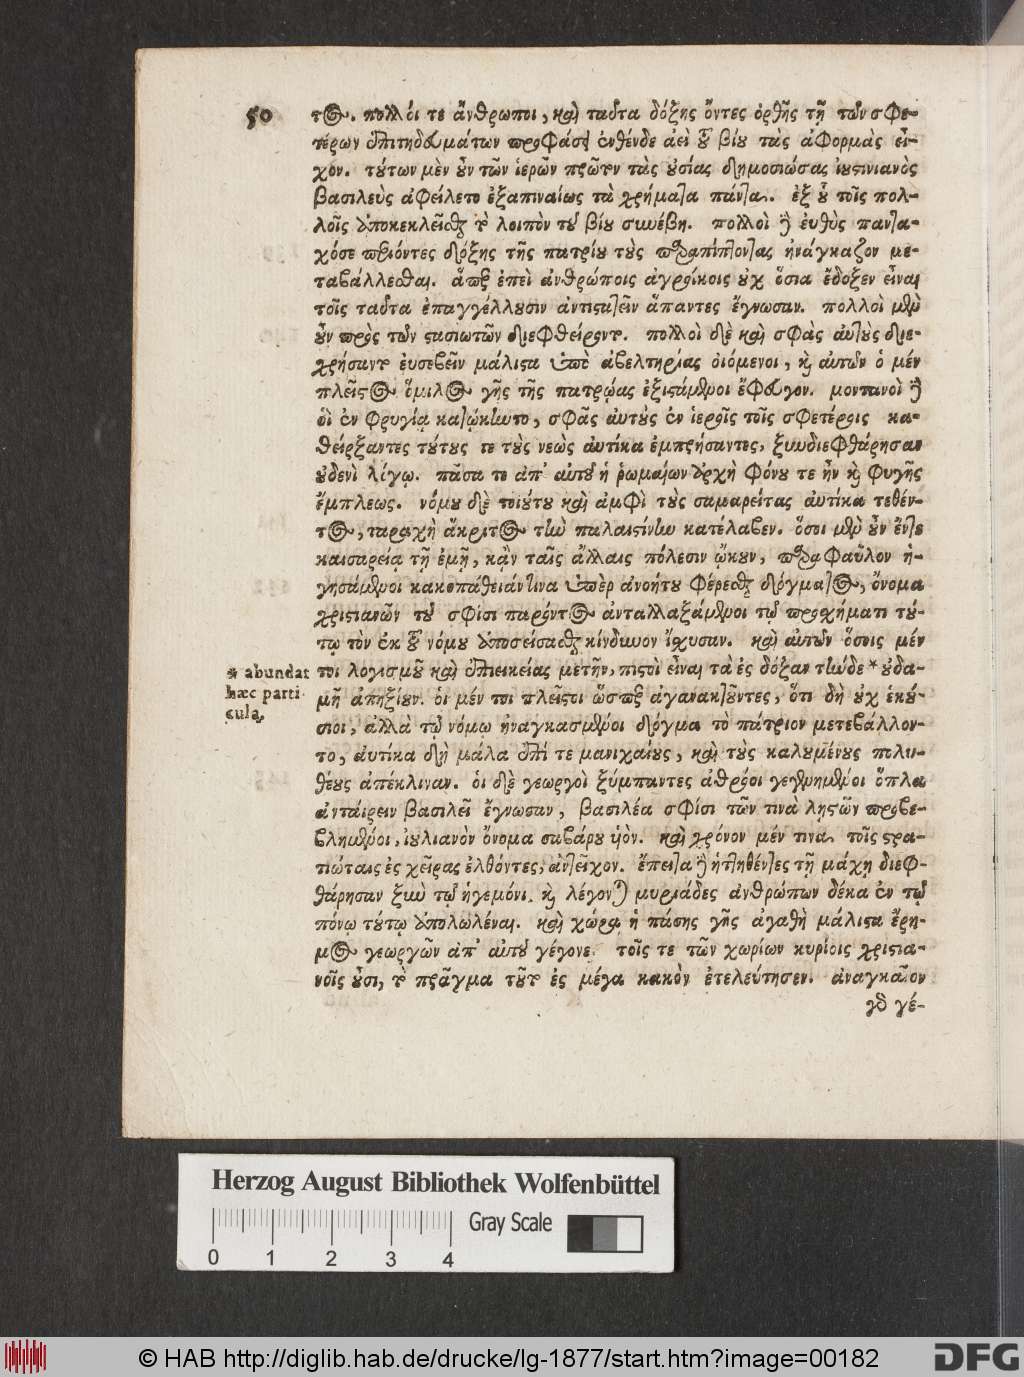 50
τος. πολλοί τε ἄνθρωποι, καὶ ταῦτα δόξης ὄντες ὀρθῆς τῇ τῶν σφε-
τέρων ἐπιτηδευμάτων προφάσει ἐνθένδε ἀεὶ τοῦ βίου τὰς ἀφορμὰς εἶ-
χον. τούτων μὲν οὖν τῶν ἱερῶν πρῶτον τὰς οὐσίας δημοσιώσας ἰουστινιανὸς
βασιλεὺς ἀφείλετο ἐξαπιναίως τὰ χρήματα πάντα. ἐξ οὗ τοῖς πολ-
λοῖς ἀποκεκλεῖσθαι τὸ λοιπὸν τοῦ βίου συνέβη. πολλοὶ δὲ εὐθὺς παντα-
χόσε περιόντες δόξης τῆς πατρίου τοὺς παραπίπτοντας ἠνάγκαζον με-
ταβάλλεσθαι. ἅπερ ἐπεὶ ἀνθρώποις ἀγροίκοις οὐχ ὅσια ἔδοξεν εἶναι
τοῖς ταῦτα ἐπαγγέλλουσιν ἀντιστατεῖν ἅπαντες ἔγνωσαν. πολλοὶ μὲν
οὖν πρὸς τῶν στασιωτῶν διεφθείροντο. πολλοὶ δὲ καὶ σφᾶς αὐτοὺς διε-
χρήσαντο εὐσεβεῖν μάλιστα ὑπὸ ἀβελτηρίας οἰόμενοι, καὶ αὐτῶν ὁ μέν
πλεῖστος ὅμιλος γῆς τῆς πατρῴας ἐξιστάμενοι ἔφευγον. μοντανοὶ δὲ
οἳ ἐν φρυγίᾳ κατῴκηντο, σφᾶς αὐτοὺς ἐν ἱεροῖς τοῖς σφετέροις κα-
θείρξαντες τούτους τε τοὺς νεὼς αὐτίκα ἐμπρήσαντες, ξυνδιεφθάρησαν
οὐδενὶ λόγῳ. πᾶσα τε ἀπ' αὐτοῦ ἡ ῥωμαίων ἀρχὴ φόνου τε ἦν καὶ φυγῆς
ἔμπλεως. νόμου δὲ τοιούτου καὶ ἀμφὶ τοὺς σαμαρείτας αὐτίκα τεθέν-
τος, ταραχὴ ἄκριτος τὴν παλαιστίνην κατέλαβεν. ὅσοι μὲν οὖν ἔν τε
καισαρείᾳ τῇ ἐμῇ, κἂν ταῖς ἄλλαις πόλεσιν ᾤκουν, παρὰ φαῦλον ἡ-
γησάμενοι κακοπάθειάν τινα ὑπὲρ ἀνοήτου φέρεσθαι δόγματος, ὄνομα
χριστιανῶν τοῦ σφίσι παρόντος ἀνταλλαξάμενοι τῷ προσχήματι τού-
τῳ τὸν ἐκ τοῦ νόμου ἀποσείσασθαι κίνδυνον ἴσχυσαν. καὶ αὐτῶν ὅσοις μέν
τοι λογισμοῦ καὶ ἐπιεικείας μετῆν, πιστοὶ εἶναι τὰ ἐς δόξαν τήνδε * οὐδα-
μῆ ἀπηξίουν. οἱ μέν τοι πλεῖστοι ὥσπερ ἀγανακτοῦντες, ὅτι δὴ οὐχ ἑκού-
σιοι, ἀλλὰ τῷ νόμῳ ἠναγκασμένοι δόγμα τὸ πάτριον μετεβάλλον-
το, αὐτίκα δὴ μάλα ἐπί τε μανιχαίους, καὶ τοὺς καλουμένους πολυ-
θέους ἀπέκλιναν. οἱ δὲ γεωργοὶ ξύμπαντες ἀθρόοι γεγενημένοι ὅπλα
ἀνταίρειν βασιλεῖ ἔγνωσαν, βασιλέα σφίσι τῶν τινὰ λῃστῶν προβε-
βλημένοι, ἰουλιανὸν ὄνομα σαβάρου υἱόν. καὶ χρόνον μέν τινα τοῖς στρα-
τιώταις ἐς χεῖρας ἐλθόντες, ἀντεῖχον. ἔπειτα δὲ ἡττηθέντες τῇ μάχῃ διεφ-
θάρησαν ξὺν τῷ ἡγεμόνι. καὶ λέγονται μυριάδες ἀνθρώπων δέκα ἐν τῷ
πόνῳ τούτῳ ἀπολωλέναι. καὶ χώρα ἡ πάσης γῆς ἀγαθὴ μάλιστα ἔρη-
μος γεωργῶν ἀπ' αὐτοῦ γέγονε. τοῖς τε τῶν χωρίων κυρίοις χριστια-
νοῖς οὖσι, τὸ πρᾶγμα τοῦτο ἐς μέγα κακὸν ἐτελεύτησεν. ἀναγκαῖον
γὰρ γέ-
* abundat
hæc parti
cula,
Herzog August Bibliothek Wolfenbüttel
Gray Scale
0 1 2 3 4
© HAB http://diglib.hab.de/drucke/lg-1877/start.htm?image=00182
DFG